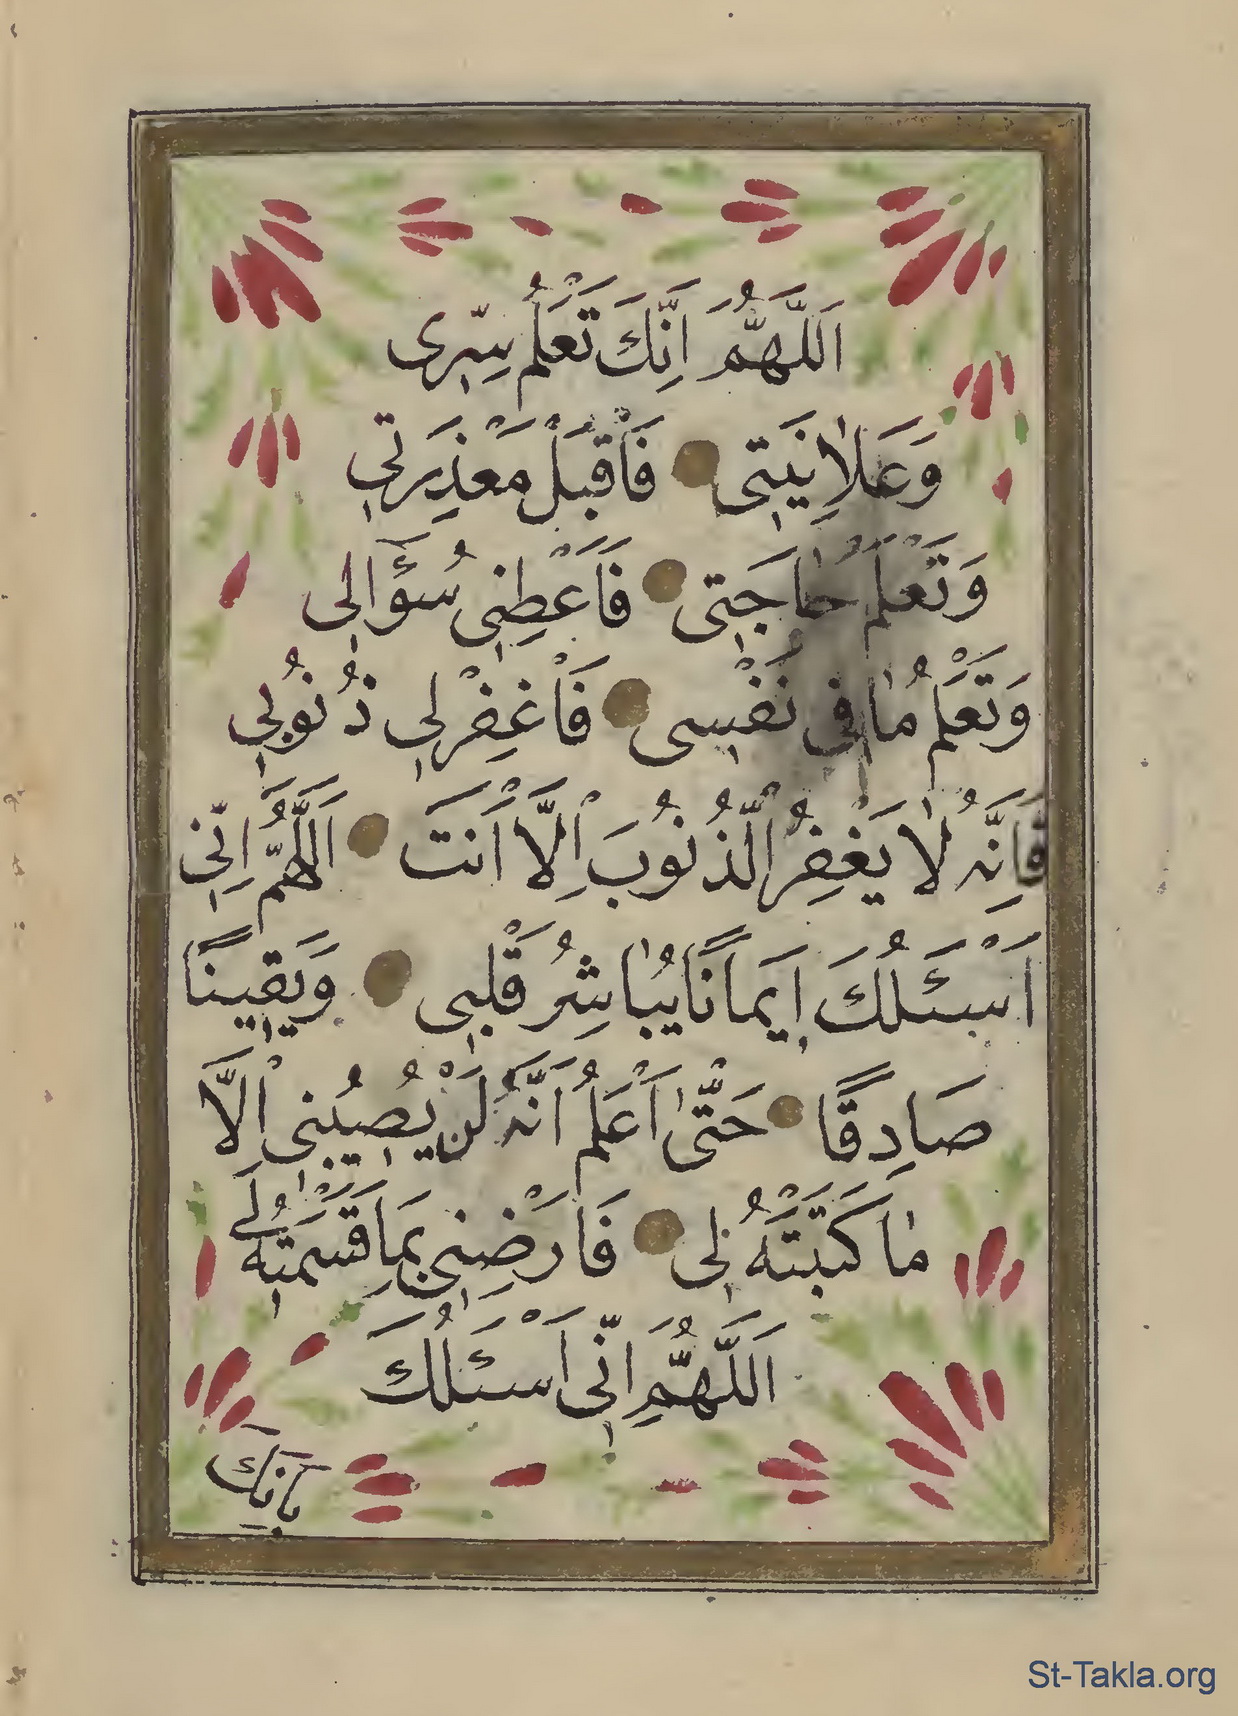 اَللّٰهُمَّ اِنَّكَ تَعْلَمُ سِرّٖى
وَعَلاٰنِيَتٖى فَاقْبَلْ مَعْذِرَتٖي
وَتَعْلَمُ حٰاجَتٖى فَاَعْطِنٖى سُؤَالٖى
وَتَعْلَمُ مٰا فٖى نَفْسٖى فَاغْفِرْلٖى ذُنُوبٖي
فَاِنَّهُ لاٰ يَغْفِرُ الذُّنُوبَ اِلَّا اَنْتَ اَللّٰهُمَّ اِنّٖي
اَسْئَلُكَ اِيمَانًا يُبٰاشِرُ قَلْبٖى وَيَقٖينًا
صَادِقًا حَتّٰى اَعْلَمُ اَنَّهُ لَنْ يُصٖيبَنٖى اِلَّا
مٰا كَتَبْتَهُ لٖى فَاَرْضِنٖى بِمَا قَسَمْتَهُ لٖى
اَللّٰهُمَّ اِنّٖى اَسْئَلُكَ
بِاَنَّكَ
St-Takla.org